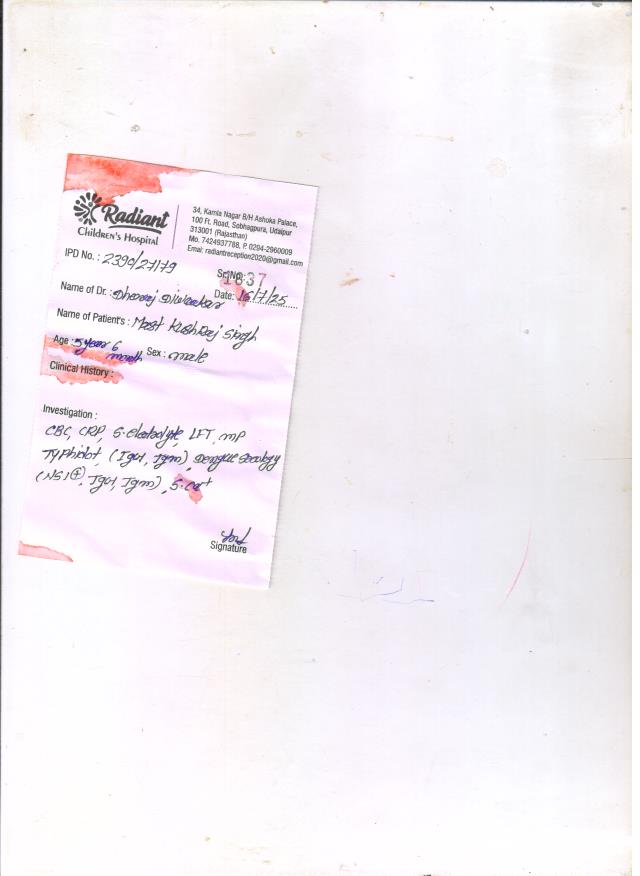 Radiant
Children's Hospital
34, Kamla Nagar B/H Ashoka Palace,
100 Ft. Road, Sobhagpura, Udaipur
313001 (Rajasthan)
Mo. 7424937788, P. 0294-2960009
Email: radiantreception2020@gmail.com
IPD No. : 2390/27/79
Sr. No. 1837
Name of Dr. : Dheeraj Diwakar
Date: 16/7/25
Name of Patient's : Mast Kushraj Singh
Age : 5 year 6 month Sex : male
Clinical History :
Investigation :
CBC, CRP, S. Electrolyte, LFT, MP
Typhidot (IgG, Igm), Dengue Serology
(NS1 +, IgG, Igm), S.
Signature